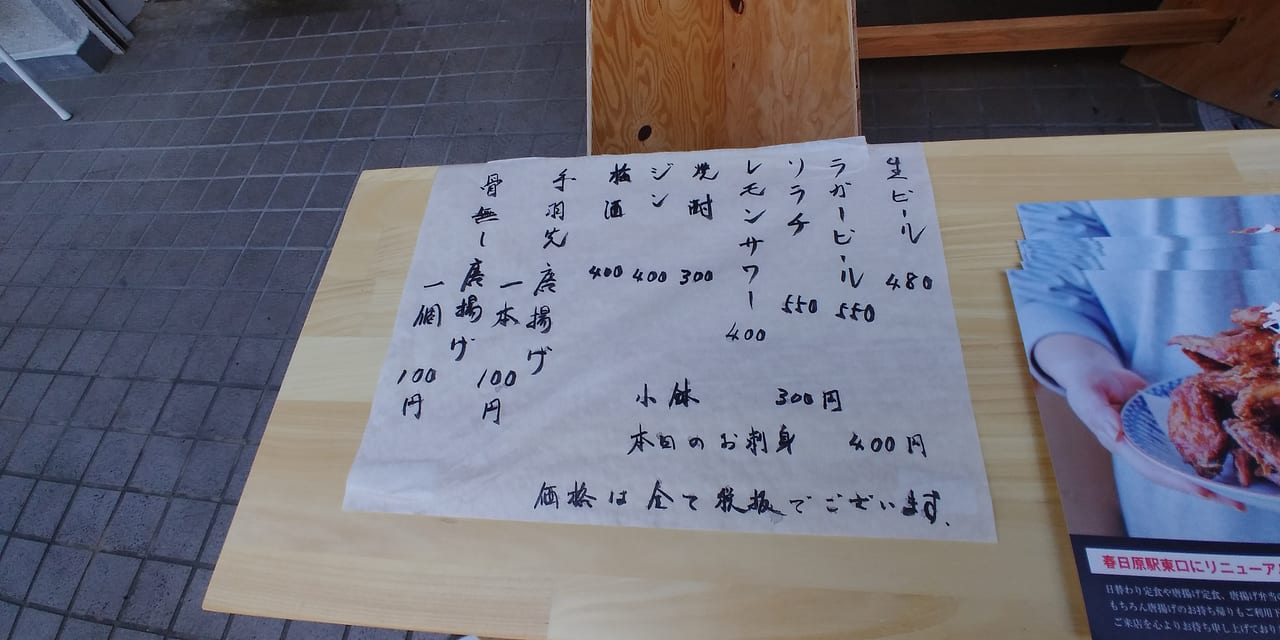 生ビール 480
ラガービール 550
ソラチ 550
レモンサワー 400
焼酎 300
ジン 400
梅酒 400
手羽先
唐揚げ
一本 100円
骨無し
唐揚げ
一個 100円
小鉢 300円
本日のお刺身 400円
価格は全て税抜でございます.
春日原駅東口にリニューア
日替わり定食や唐揚げ定食、唐揚げ弁当の
もちろん唐揚げのお持ち帰りもご利用下
ご来店を心よりお待ち申し上げており